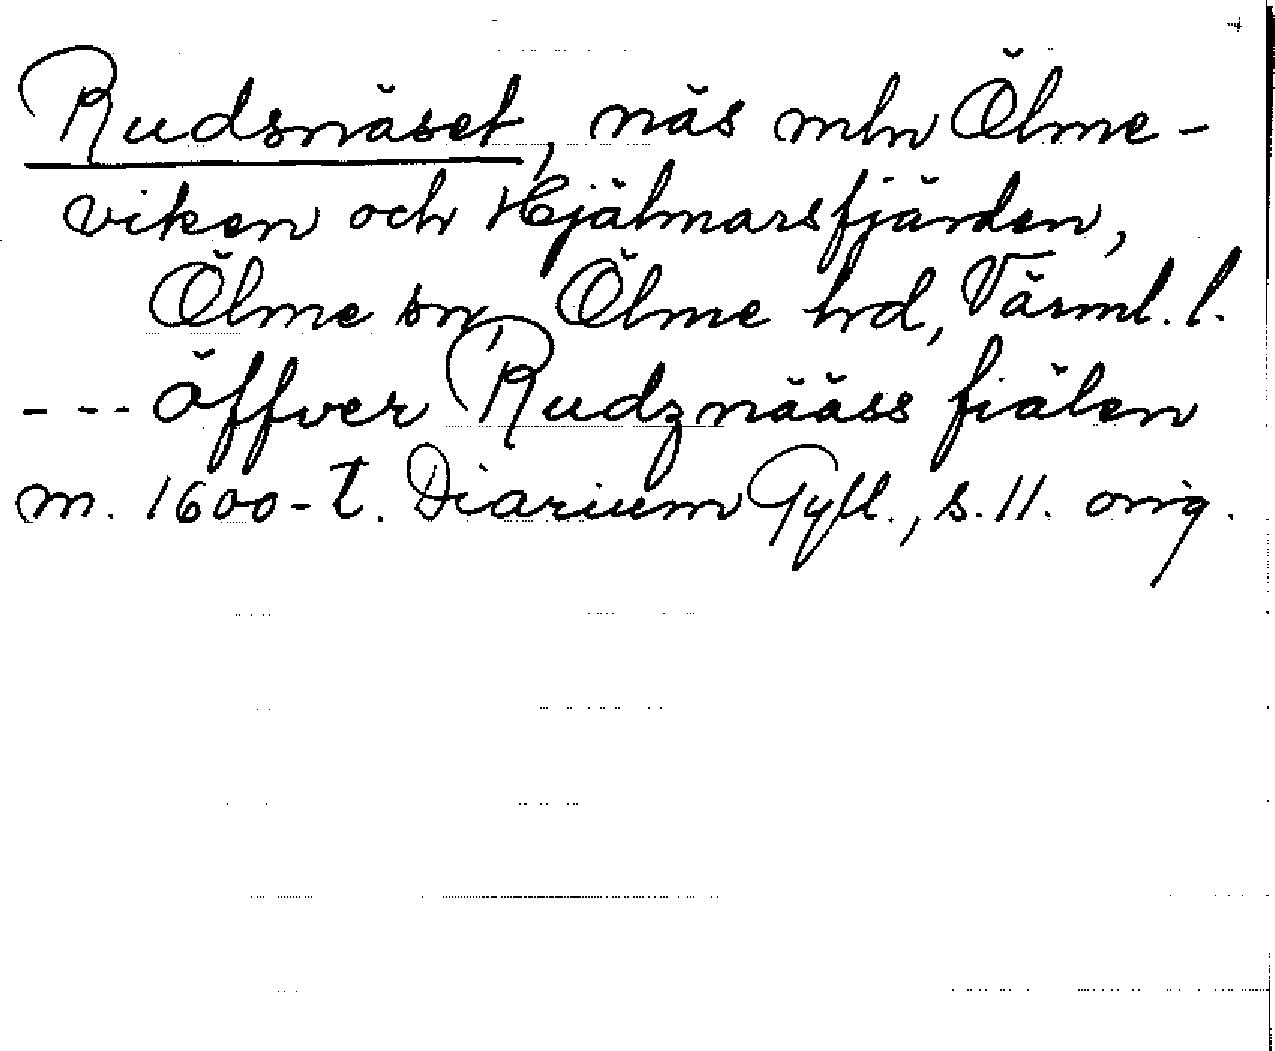 Rudsnäset, näs mln Ölme-
viken och Hjälmarsfjärden,
Ölme sn, Ölme hd, Värml. l.
--- öffver Rudznääss fiälen
m. 1600-t. Diarium Gyll., s. 11. orig.